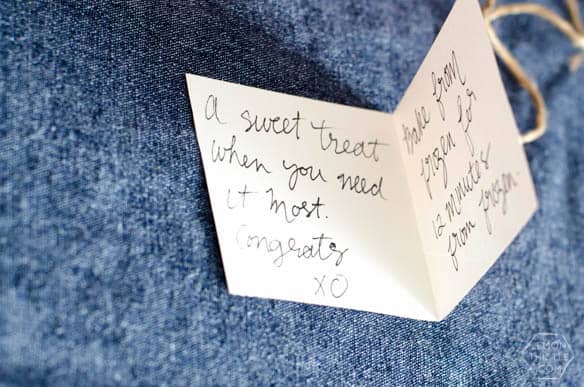 A sweet treat
when you need
it most.
Congrats
XO
bake from
frozen for
12 minutes
from frozen.
LEMON
THISTLE
.COM